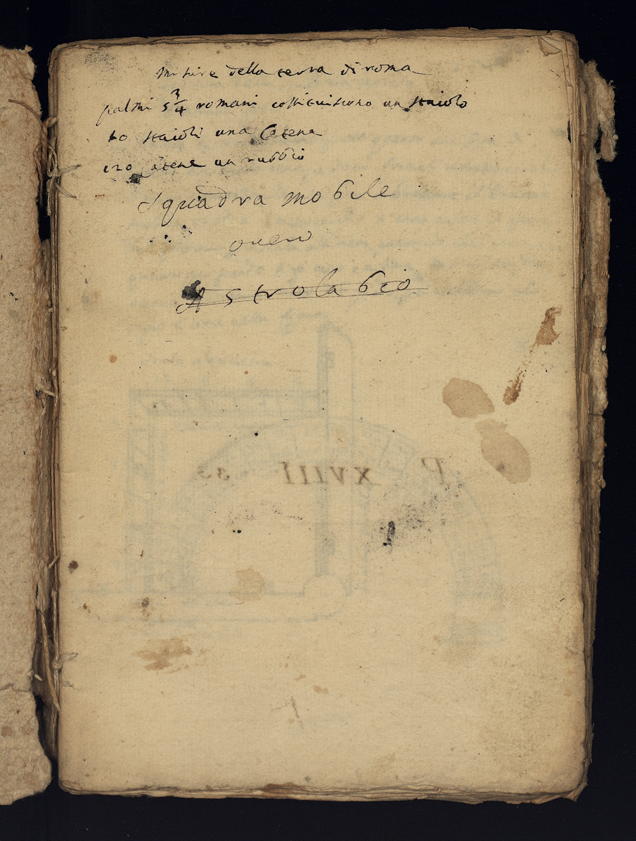 misure della terra di roma
palmi 5 3/4 romani costituiscono un staiolo
10 staioli una Catena
catene un rubbio
Squadra mobile
overo
Astrolabio
P XVIII 33